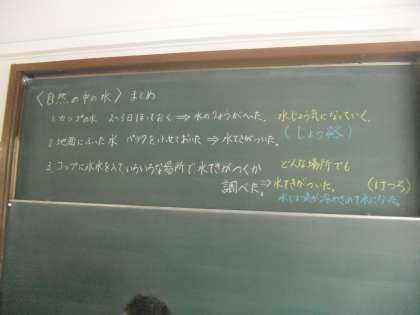 〈自然の中の水〉 まとめ
1. カップの水 2~3日ほっておく ⇒ 水のりょうがへった。 水じょう気になっていく。
(じょう発)
2. 地面にふった水 パックをふせておいた ⇒ 水てきがついた。
3. コップに氷水を入れいろいろな場所で水てきがつくか どんな場所でも
調べた。⇒ 水てきがついた。 (けつろ)
水じょう気が冷やされて水になった。